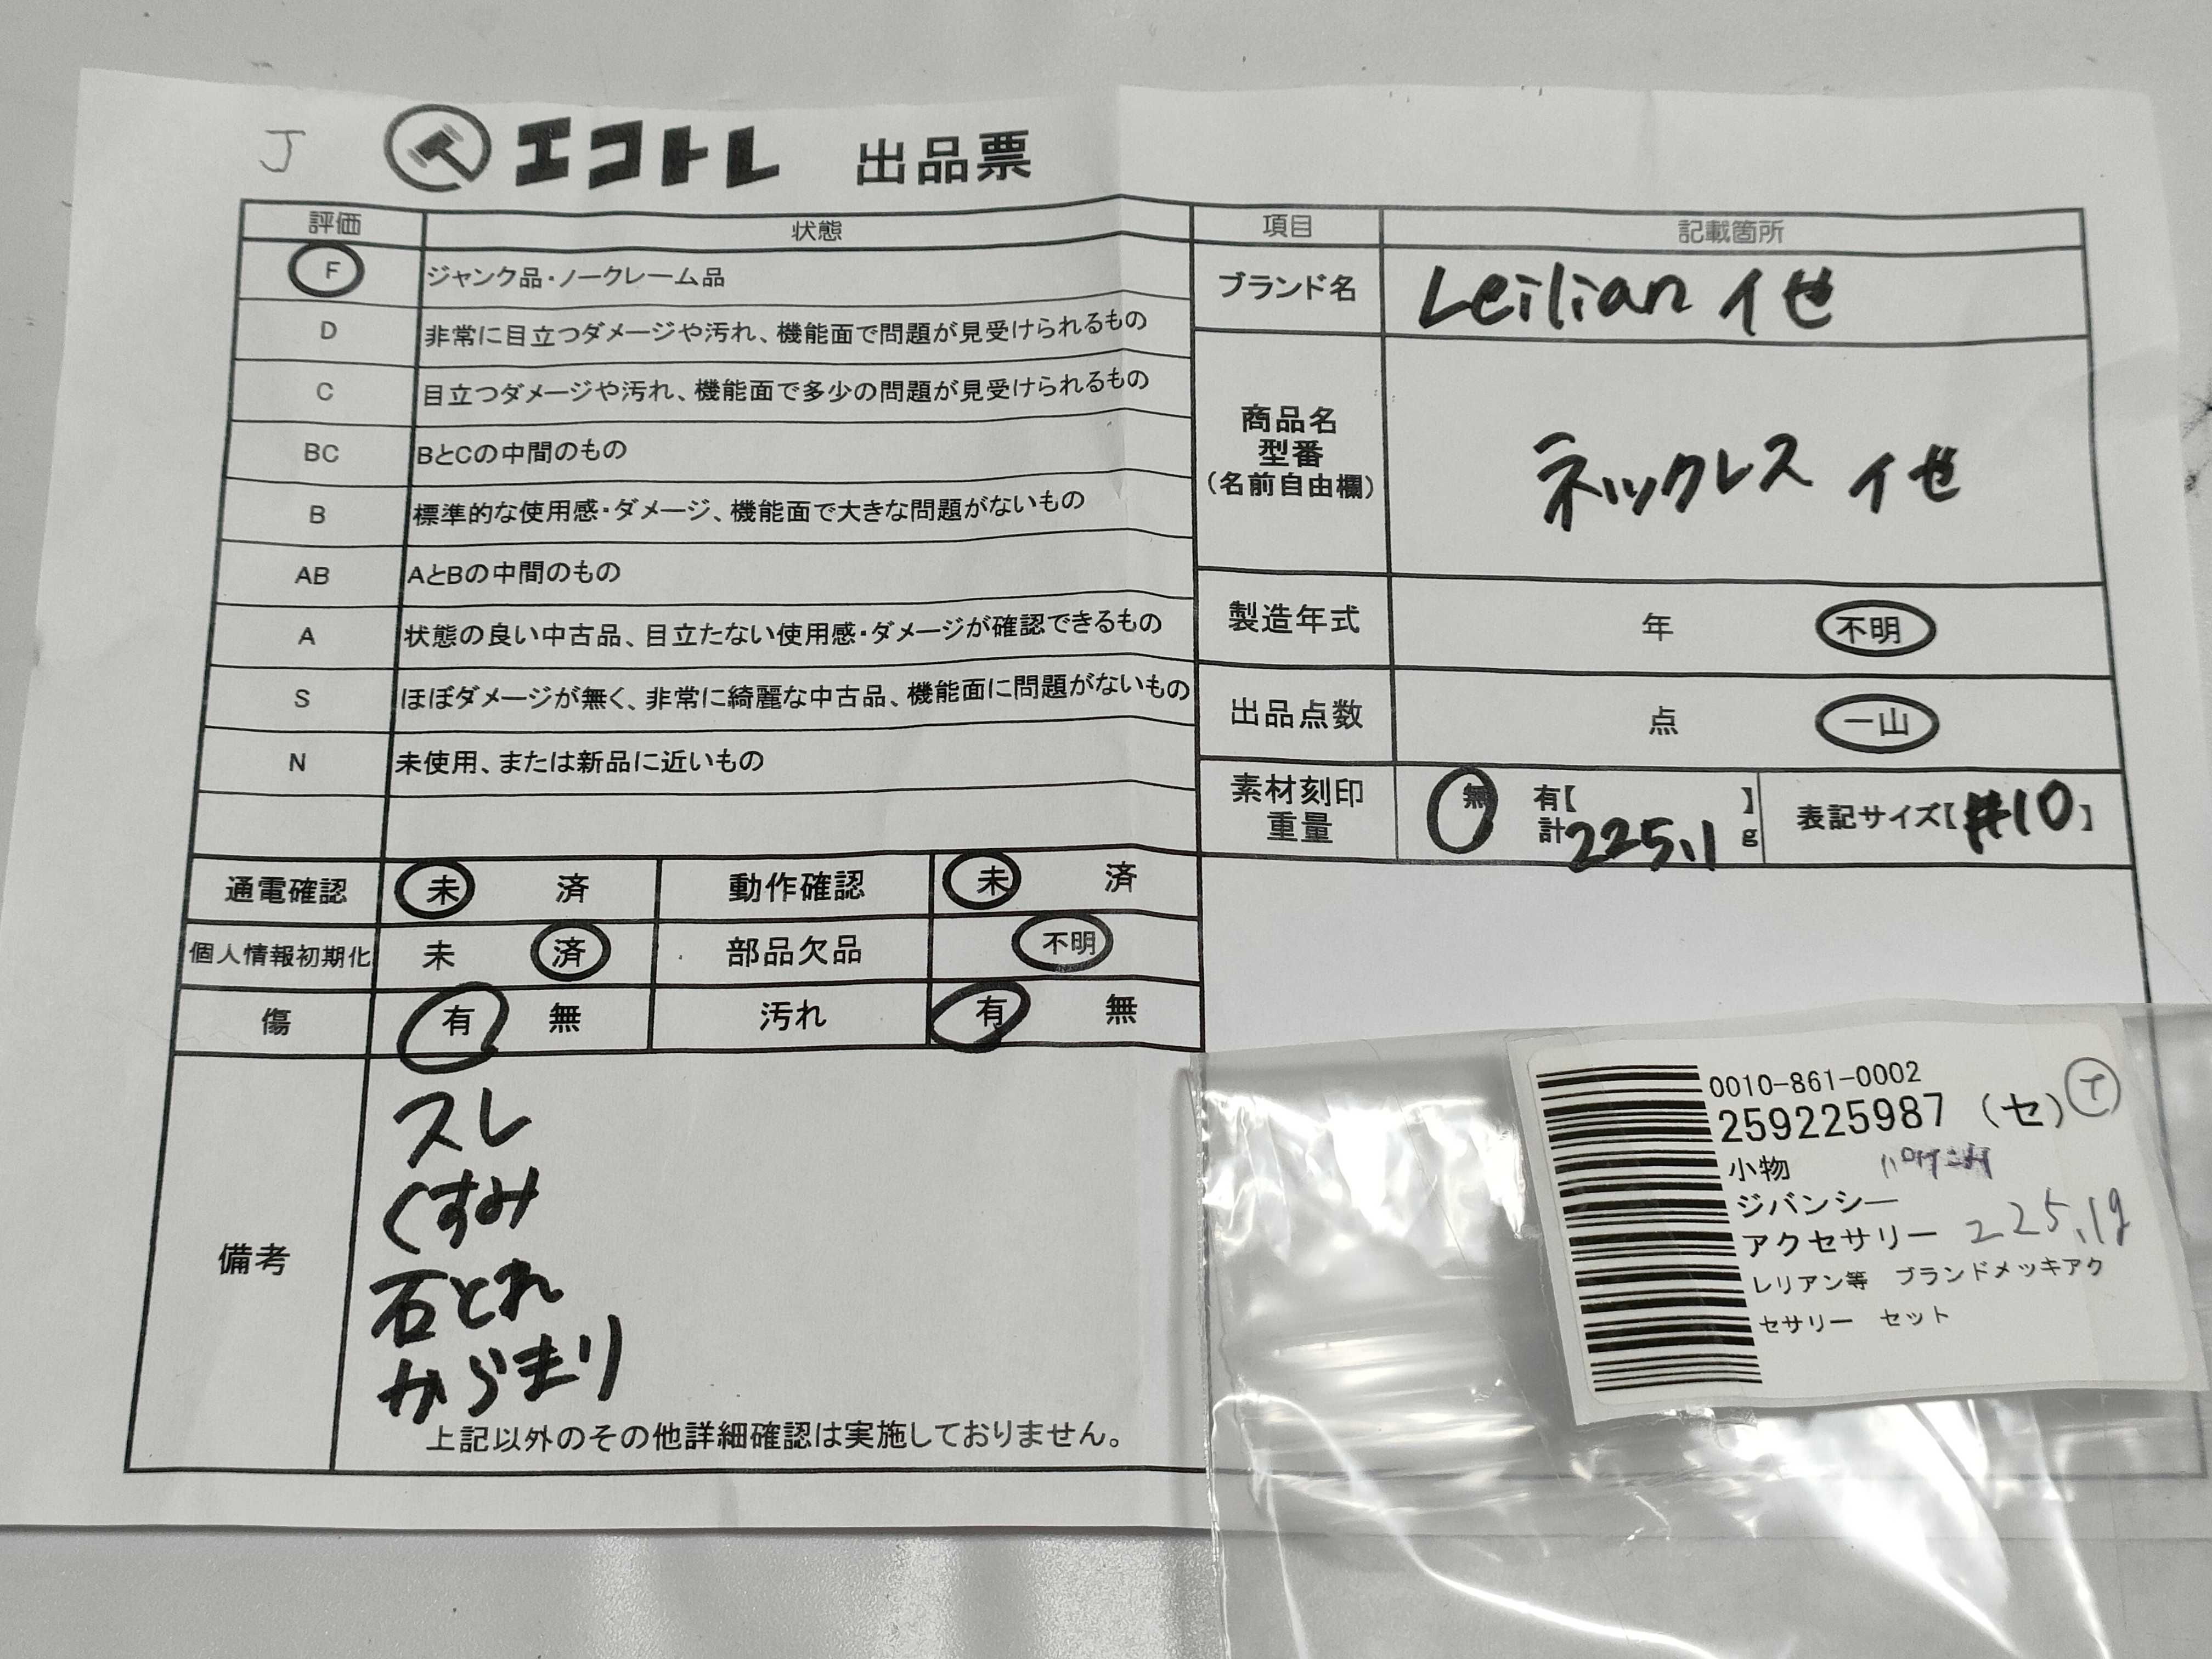 J
エコトレ 出品票
評価 状態
F ジャンク品・ノークレーム品
D 非常に目立つダメージや汚れ、機能面で問題が見受けられるもの
C 目立つダメージや汚れ、機能面で多少の問題が見受けられるもの
BC BとCの中間のもの
B 標準的な使用感・ダメージ、機能面で大きな問題がないもの
AB AとBの中間のもの
A 状態の良い中古品、目立たない使用感・ダメージが確認できるもの
S ほぼダメージが無く、非常に綺麗な中古品、機能面に問題がないもの
N 未使用、または新品に近いもの
通電確認 未 済 動作確認 未 済
個人情報初期化 未 済 部品欠品 不明
傷 有 無 汚れ 有 無
備考
スレ
くすみ
石とれ
からまり
上記以外のその他詳細確認は実施しておりません。
項目 記載箇所
ブランド名 Leilian イセ
商品名
型番
(名前自由欄)
ネックレス イセ
製造年式 年 不明
出品点数 点 一山
素材刻印
重量
無 有【 】
計225.1g
表記サイズ【#10】
0010-861-0002
259225987 (セ)
小物
ジバンシー
アクセサリー 225.1g
レリアン等 ブランドメッキアク
セサリー セット